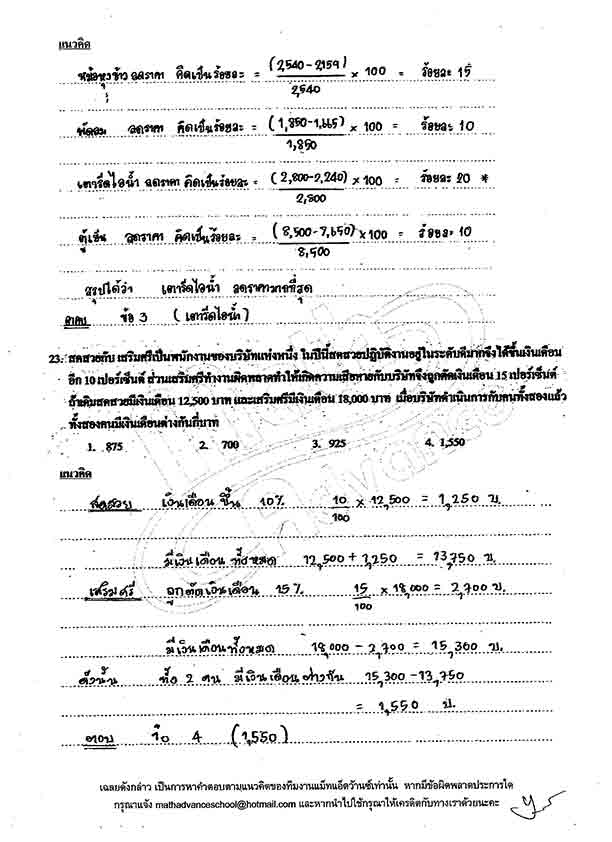 แนวคิด
หม้อหุงข้าว ลดราคา คิดเป็นร้อยละ = (2,540-2,159) × 100 = ร้อยละ 15
2,540
พัดลม ลดราคา คิดเป็นร้อยละ = (1,850-1,665) × 100 = ร้อยละ 10
1,850
เตารีดไอน้ำ ลดราคา คิดเป็นร้อยละ = (2,800-2,240) × 100 = ร้อยละ 20 *
2,800
ตู้เย็น ลดราคา คิดเป็นร้อยละ = (8,500-7,650) × 100 = ร้อยละ 10
8,500
สรุปได้ว่า เตารีดไอน้ำ ลดราคามากที่สุด
ตอบ ข้อ 3 (เตารีดไอน้ำ)
23. สดสวยกับ เสริมศรีเป็นพนักงานของบริษัทแห่งหนึ่ง ในปีนี้สดสวยปฏิบัติงานอยู่ในระดับดีมากจึงได้ขึ้นเงินเดือน
อีก 10 เปอร์เซ็นต์ ส่วนเสริมศรีทำงานผิดพลาดทำให้เกิดความเสียหายกับบริษัทจึงถูกตัดเงินเดือน 15 เปอร์เซ็นต์
ถ้าเดิมสดสวยมีเงินเดือน 12,500 บาท และเสริมศรีมีเงินเดือน 18,000 บาท เมื่อบริษัทดำเนินการกับคนทั้งสองแล้ว
ทั้งสองคนมีเงินเดือนต่างกันกี่บาท
1. 875 2. 700 3. 925 4. 1,550
แนวคิด
สดสวย เงินเดือน ขึ้น 10% 10 × 12,500 = 1,250 บ.
100
มีเงินเดือน ทั้งหมด 12,500 + 1,250 = 13,750 บ.
เสริมศรี ถูกตัดเงินเดือน 15% 15 × 18,000 = 2,700 บ.
100
มีเงินเดือนทั้งหมด 18,000 - 2,700 = 15,300 บ.
ดังนั้น ทั้ง 2 คน มีเงินเดือนต่างกัน 15,300 - 13,750
= 1,550 บ.
ตอบ ข้อ 4 (1,550)
เฉลยดังกล่าว เป็นการหาคำตอบตามแนวคิดของทีมงานแม็ทแอ็ดว้านซ์เท่านั้น หากมีข้อผิดพลาดประการใด
กรุณาแจ้ง mathadvanceschool@hotmail.com และหากนำไปใช้กรุณาให้เครดิตกับทางเราด้วยนะคะ